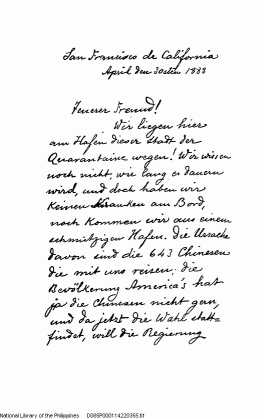 San Francisco de California
April den 30sten 1888
Teuerer Freund!
Wir liegen hier
am Hafen dieser Stadt der
Quarantaine wegen! Wir wissen
noch nicht, wie lang es dauern
wird, und doch haben wir
keinen Kranken am Bord,
noch kommen wir aus einem
schmutzigen Hafen. Die Ursache
davon sind die 643 Chinesen
die mit uns reisen; die
Bevölkerung America's hat
ja die Chinesen nicht gern,
und da jetzt die Wahl statt=
findet, will die Regierung
National Library of the Philippines